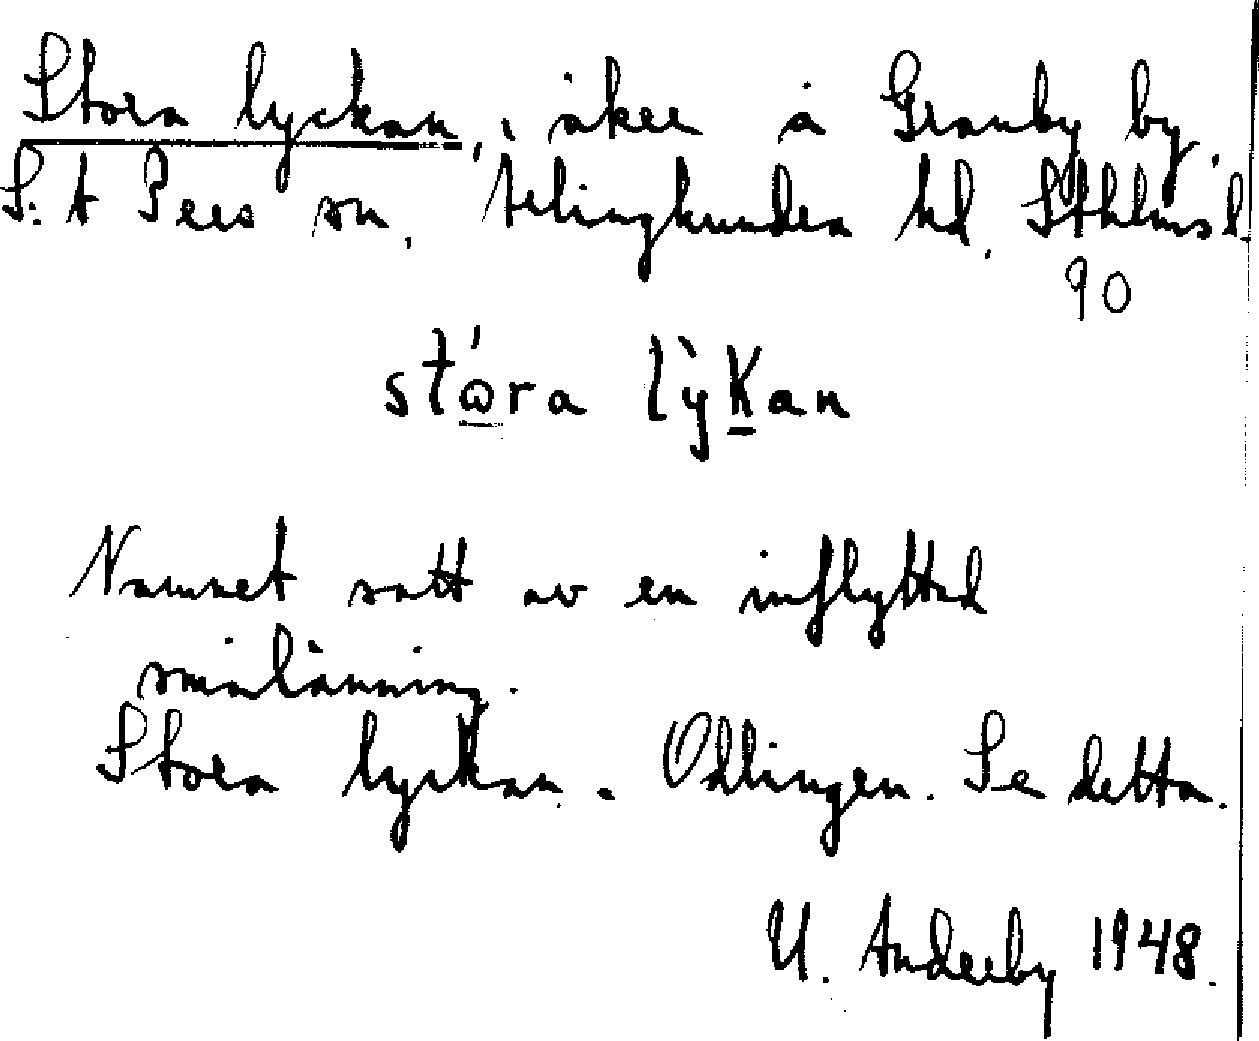 Stora lyckan, åker å Granby by,
S:t Pers sn, Ärlinghundra hd, Sthlms l.
90
stώra lỳKan
Namnet satt av en inflyttad
smålänning.
Stora lyckan. Odlingen. Se detta.
U. Anderby 1948.